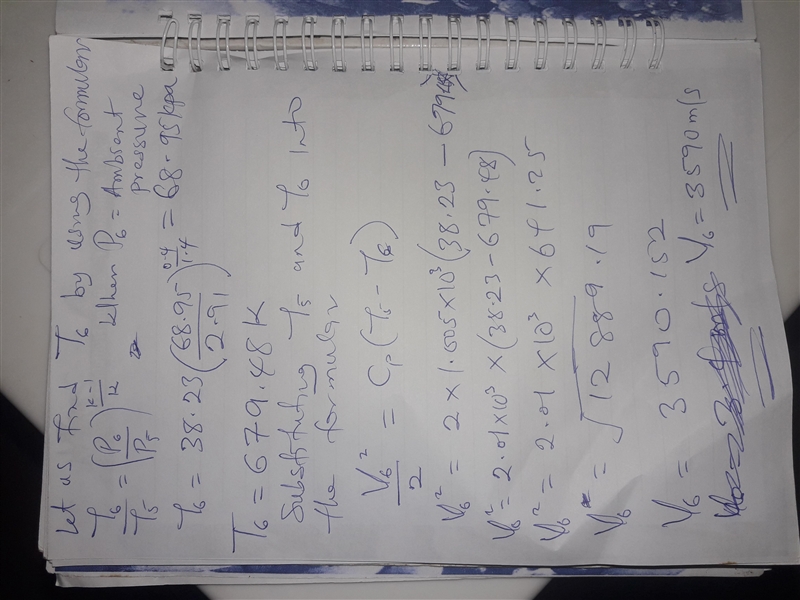 Let us find T6 by using the formular
T6/T5 = (P6/P5)^(k-1/k) When P6 = Ambient pressure
T6 = 38.23(68.95/2.91)^(0.4/1.4) = 68.95kpa
T6 = 679.48K
Substituting T5 and T6 into
the formular
V6²/2 = Cp(T5 - T6)
V6² = 2 x 1.005 x 10³ (38.23 - 679.48)
V6² = 2.01 x 10³ x (38.23 - 679.48)
V6² = 2.01 x 10³ x 641.25
V6 = √12889.19
V6 = 3590.152
V6 = 3590m/s